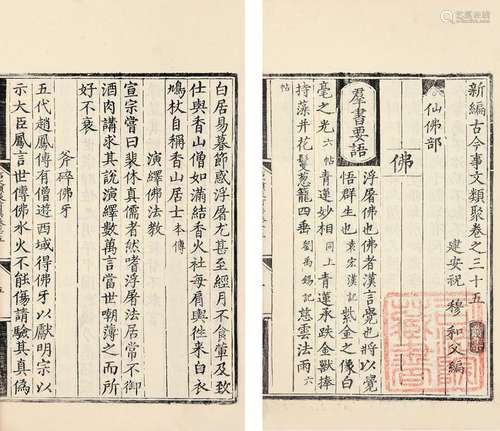 新編古今事文類聚卷之三十五
建安祝 穆 和父 編
仙佛部
佛
羣書要語
浮屠佛也佛者漢言覺也將以覺
悟群生也 袁宏漢紀 紫金之像白
毫之光 六帖 青蓮妙相 同上 青蓮承趺金獸捧
持藻井花鬘葱籠四垂 劉禹錫記 慈雲法雨 六
帖
白居易暮節惑浮屠尤甚至經月不食葷及致
仕與香山僧如滿結香火社每肩輿徃来白衣
鳩杖自稱香山居士 本傳
演繹佛法教
宣宗嘗曰裴休真儒者然嗜浮屠法居常不御
酒肉講求其説演繹數萬言當世嘲薄之而所
好不衰
斧碎佛牙
五代趙鳳傳有僧遊西域得佛牙以獻明宗以
示大臣鳳言世傳佛水火不能傷請驗其真偽